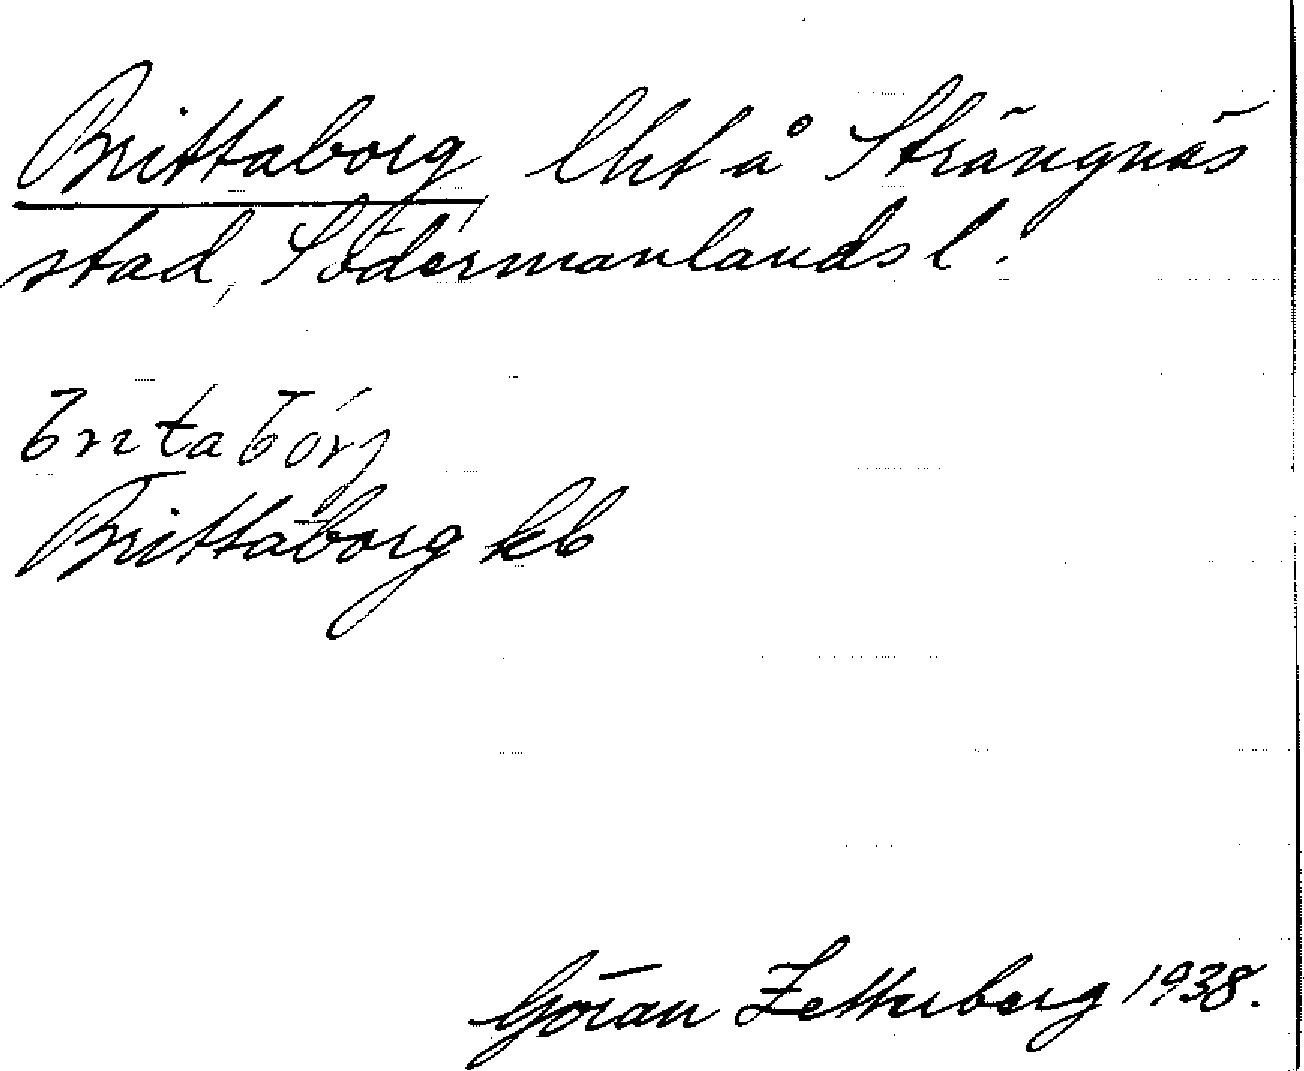 Brittaborg lht å Strängnäs
stad, Södermanlands l.
Brittaborg kb
Göran Zetterberg 1938.